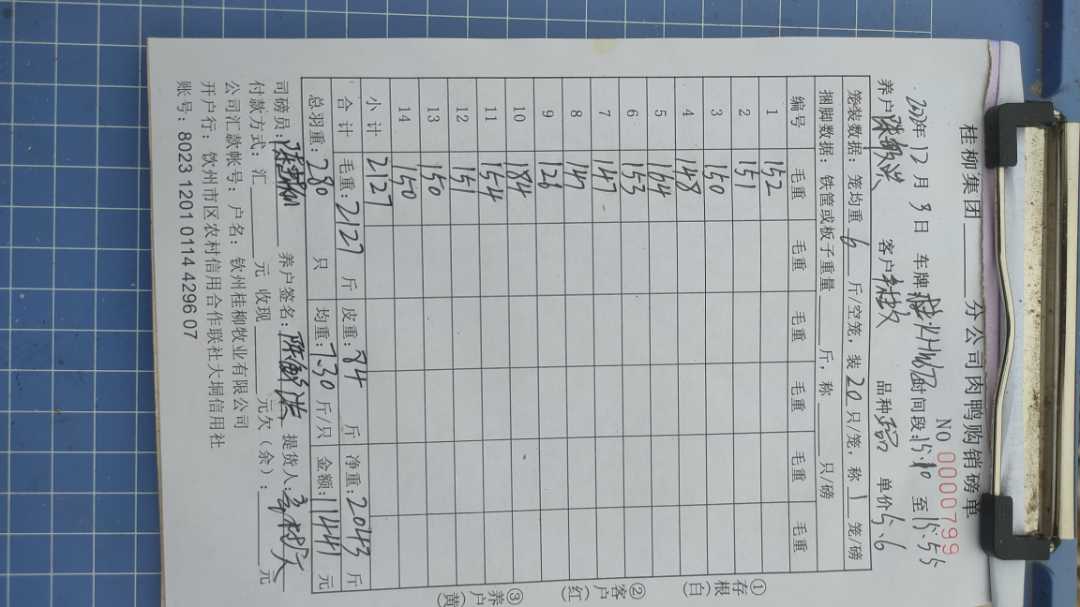 桂柳集团 分公司肉鸭购销磅单
NO 0000799
2020年12月3日 车牌 时间段:15:10 至 15:55
养户 客户 品种 单价5.6
笼装数据:笼均重 6 斤/空笼,装 20 只/笼,称 1 笼/磅
捆脚数据:铁筐或板子重量 斤,称 只/磅
编号 毛重 毛重 毛重 毛重 毛重 毛重
1 152
2 151
3 150
4 148
5 164
6 153
7 147
8 147
9 126
10 184
11 154
12 151
13 150
14 150
小计 2127
合计 毛重:2127 斤 皮重:84 斤 净重:2043 斤
总羽重:280 只 均重:7.30 斤/只 金额:11441 元
司磅员: 养户签名: 提货人:
付款方式:汇 元 收现 元欠(余): 元
公司汇款帐号:户名:钦州桂柳牧业有限公司
开户行:钦州市区农村信用合作联社大垌信用社
账号:8023 1201 0114 4296 07
①存根(白) ②客户(红) ③养户(黄